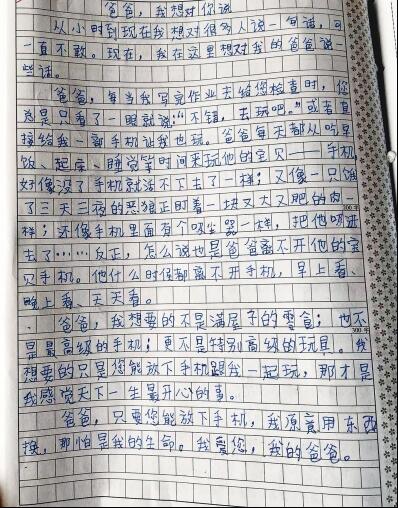 爸爸，我想对你说
从小时到现在我想对很多人说一句话，可
一直不敢。现在，我在这里想对我的爸爸说一
些话。
爸爸，每当我写完作业去给您检查时，您
总是只看了一眼就说："不错，去玩吧。"或者直
接给我一部手机让我也玩。爸爸每天都从吃早
饭、起床、睡觉等时间来玩他的宝贝——手机，
好像没了手机就活不下去了一样；又像一只饿
了三天三夜的恶狼正盯着一块又大又肥的肉一
样；还像手机里面有个吸尘器一样，把他吸进
去了……反正，怎么说也是爸爸离不开他的宝
贝手机。他什么时候都离不开手机，早上看、
晚上看、天天看。
爸爸，我想要的不是满屋子的零食；也不
是最高级的手机；更不是特别高级的玩具。我
想要的只是您能放下手机跟我一起玩，那才是
我感觉天下一生最开心的事。
爸爸，只要您能放下手机，我愿意用东西
换，那怕是我的生命。我爱您，我的爸爸。
300字